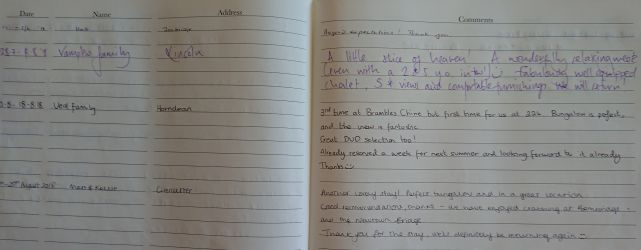 Date Name Address Comments
expectations! Thank you
family Lincoln
A little slice of heaven! A wonderfully relaxing week
(even with a 2 & 5 y.o in tow!). Fabulously well equipped
chalet, 5* view and comfortable furnishings. We will return
18.8.18 family Horndean
3rd time at Brambles Chine but first time for us at 224. Bungalow is perfect,
and the view is fantastic
Great DVD selection too!
Already reserved a week for next summer and looking forward to it already
Thanks
August 2018 Gloucester
Another lovely stay! Perfect bungalow and in a great location
Good recommendations, thanks - we have enjoyed crabbing at
and the Newtown Bridge
Thank you for the stay, we'll definitely be returning again